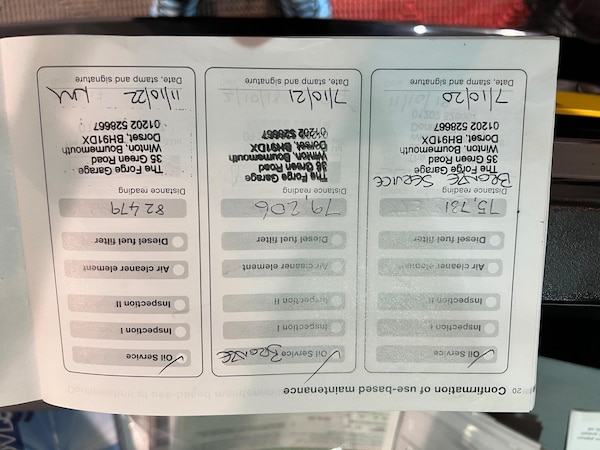 20 Confirmation of use-based maintenance
Oil Service
Inspection I
Inspection II
Air cleaner element
Diesel fuel filter
75,731
Distance reading
BRONZE SERVICE
The Forge Garage
35 Green Road
Winton, Bournemouth
Dorset, BH91DX
01202 528667
7/10/20
Date, stamp and signature
Oil Service BRONZE
Inspection I
Inspection II
Air cleaner element
Diesel fuel filter
79,206
Distance reading
The Forge Garage
35 Green Road
Winton, Bournemouth
Dorset, BH91DX
01202 528667
7/10/21
Date, stamp and signature
Oil Service
Inspection I
Inspection II
Air cleaner element
Diesel fuel filter
82479
Distance reading
The Forge Garage
35 Green Road
Winton, Bournemouth
Dorset, BH91DX
01202 528667
11/10/22
Date, stamp and signature